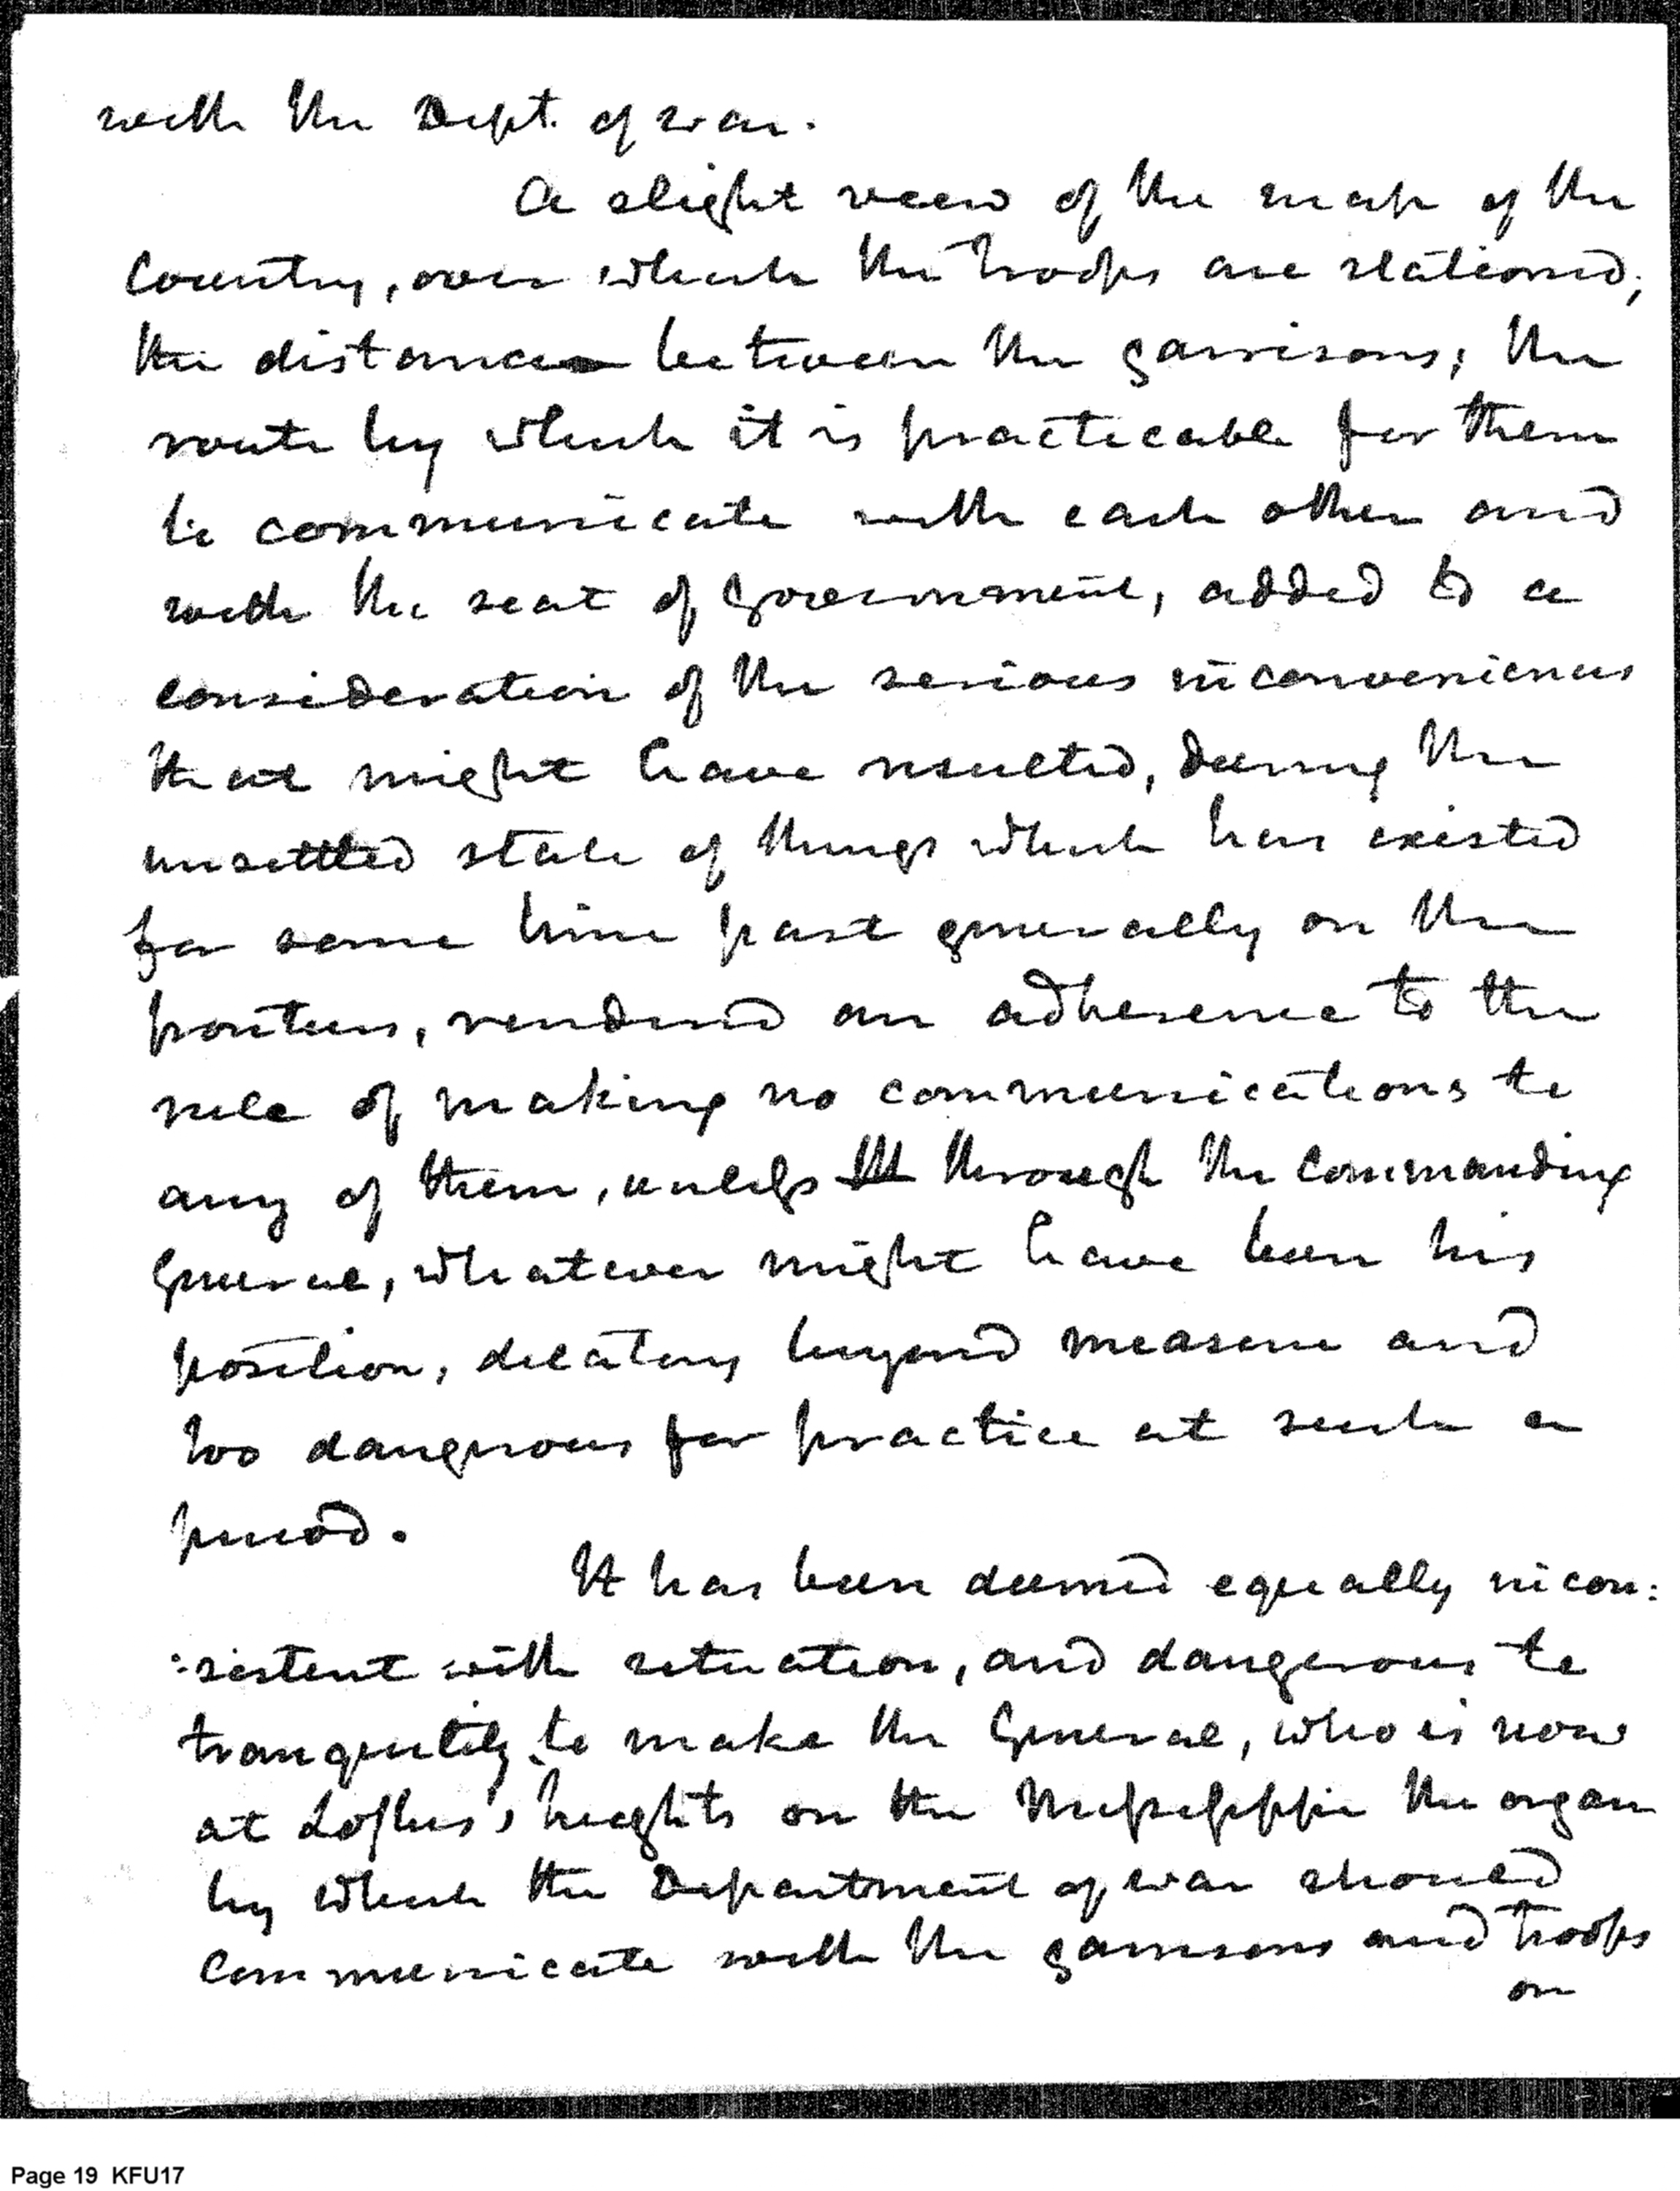 with the Dept. of war.
A slight view of the map of the
Country, over which the troops are stationed;
the distance between the garrisons; the
route by which it is practicable for them
to communicate with each other and
with the seat of Government, added to a
consideration of the serious inconveniences
that might have resulted, during the
unsettled state of things which has existed
for some time past generally on the
frontiers, rendered an adherence to the
rule of making no communications to
any of them, unless through the Commanding
General, whatever might have been his
position, dilatory beyond measure and
too dangerous for practice at such a
period.
It has been deemed equally incon:
:sistent with situation, and dangerous to
tranquility to make the General, who is now
at Loftus's heights on the Mississippi the organ
by which the Department of war should
Communicate with the garrisons and troops
on
Page 19 KFU17